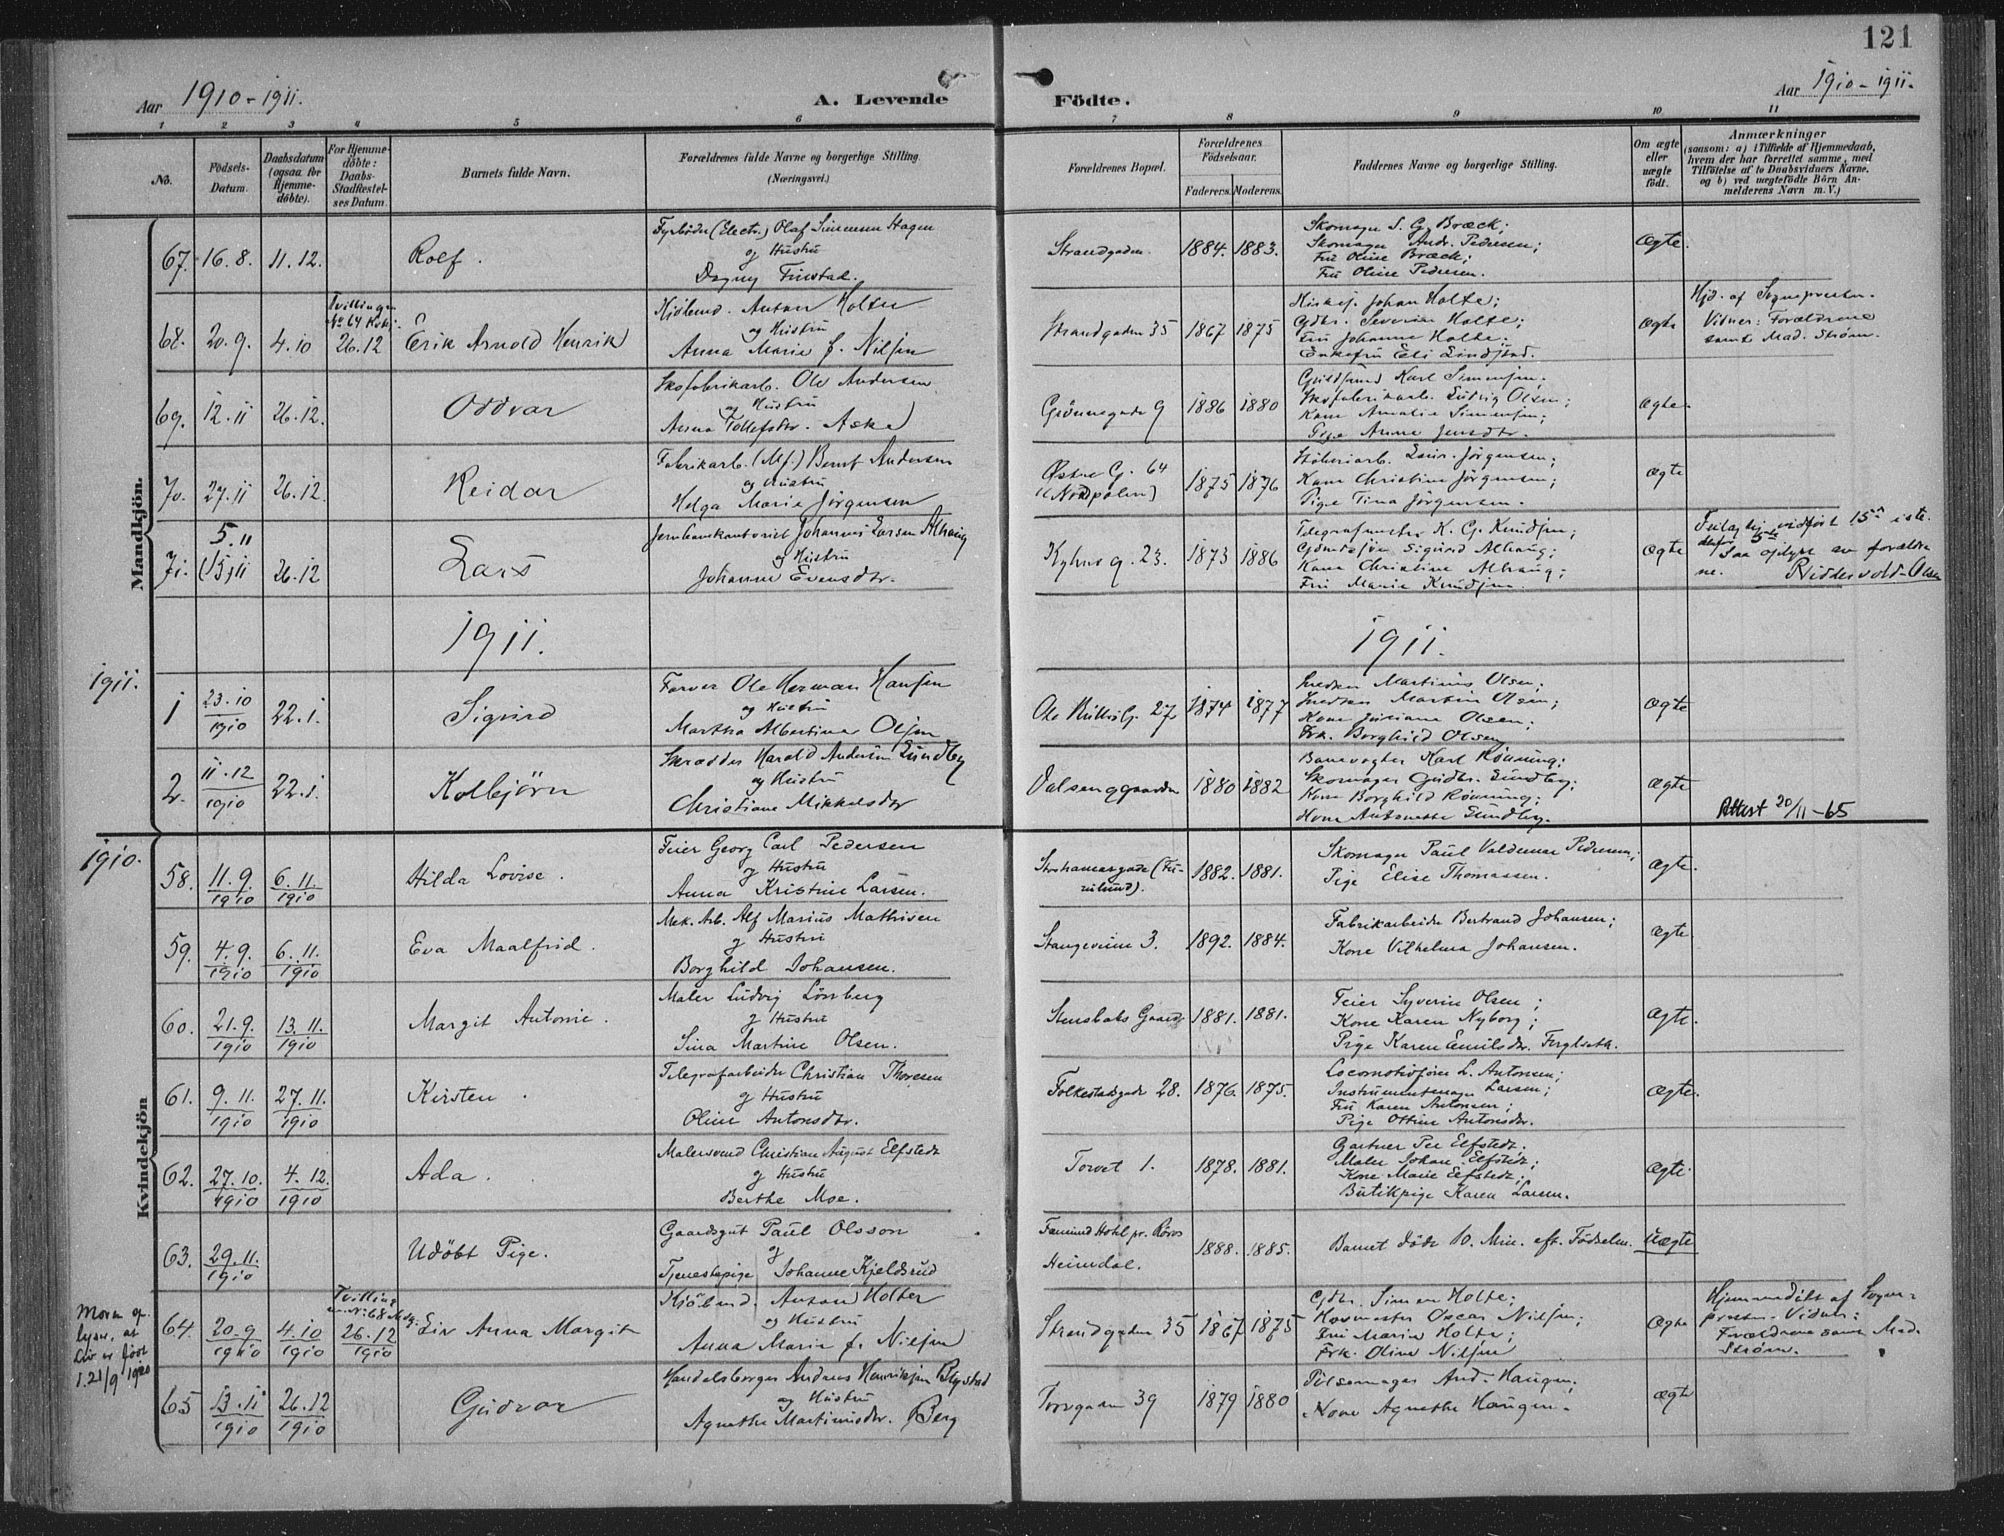 121
Aar 1910-1911.
A. Levende Födte.
Aar 1910-1911.
1 2 3 4 5 6 7 8 9 10 11
No.
Födsels-Datum.
Daabsdatum (ogsaa for Hjemmedöbte).
For Hjemmedöbte: Daabs-Stadfæstelses Datum.
Barnets fulde Navn.
Forældrenes fulde Navne og borgerlige Stilling. (Næringsvei.)
Forældrenes Bopæl.
Forældrenes Födselsaar.
Faderens. Moderens.
Faddernes Navne og borgerlige Stilling.
Om ægte eller uægte født.
Anmærkninger
(saasom: a) i Tilfælde af Hjemmedaab, hvem der har forrettet samme, med Tilföielse af to Daabsvidners Navne. og b) ved uægtefödte Börn Anmelderens Navn m. V.)
Mandkjön.
67. 16.8. 11.12. Rolf.
Fyrbøder (Electr.) Olaf Simensen Hagen
og Hustru
Dagny Finstad.
Strandgaden. 1884. 1883.
Skomager S. G. Bræck;
Skomager Andr. Pedersen;
Fru Oline Bræck;
Fru Oline Pedersen.
Ægte.
68. 20.9. 4.10
26.12
Erik Arnold Henrik
Anton Holter
og Hustru
Anna Marie f. Nilsen
Strandgaden 35 1867 1875
Johan Holte;
Severin Holte;
Fru Johanne Holte;
Enkefru Eli Lindstad.
Ægte
Hjd. af Sognepresten.
Vidner: Forældrene
samt Mad. Strøm.
69. 12.11 26.12. Oddvar
Skofabrikarb. Ole Andersen
og Hustru
Anna Tollefsdtr. Aske
Grønnegade 9 1886 1880
Karl Simensen;
Skofabrikarb. Ludvig Olsen;
Kone Amalie Simensen;
Pige Anna Jensdtr.
Ægte.
70. 27.11 26.12. Reidar
Fabrikarb. (Mf.) Bernt Andersen
og Hustru
Helga Marie Jørgensen
Østre G. 64
(Nordpolen) 1875 1876
Laur. Jørgensen;
Kone Christine Jørgensen;
Pige Tina Jørgensen.
Ægte
71. 5.11
(15/11 26.12 Lars
Johannes Larsen Alhaug
og Hustru
Johanne Evensdtr.
Kyhns g. 23. 1873 1886
Telegrafmester K. G. Knudsen;
Sigurd Alhaug;
Kone Christine Alhaug;
Fru Marie Knudsen.
Ægte
Feilagtig indført 15de istedetfor 5te
Saa oplyst av forældrene.
Riddervold-Olsen
1911. 1911.
1911.
1 23.10 1910 22.1. Sigurd
Farver Ole Herman Hansen
og Hustru
Martha Albertine Olsen
Ole Rulls G. 27. 1874 1877
Snedker Martinius Olsen;
Snedker Martin Olsen;
Kone Juliane Olsen;
Frk. Borghild Olsen
Ægte
2. 11.12 1910 22.1. Kolbjörn
Skrædder Harald Andersen Lundby
og Hustru
Christiane Mikkelsdtr
1880 1882
Banevogter Karl Rönning;
Skomager Gudbr. Lundby;
Kone Borghild Rönning;
Kone Antonette Lundby.
Ægte
Attest 20/11-65
Kvindekjön
1910.
58. 11.9. 1910 6.11. 1910 Hilda Lovise.
Feier Georg Carl Pedersen
og Hustru
Anna Kristine Larsen.
1882. 1881.
Skomager Paul Valdemar Pedersen;
Pige Elise Thomassen.
Ægte.
59. 4.9. 1910 6.11. 1910 Eva Maalfrid.
Mek. Arb. Alf Marius Mathisen
og Hustru
Borghild Johansen.
Stangeveien 3. 1892. 1884.
Fabrikarbeider Bertrand Johansen;
Kone Vilhelma Johansen.
Ægte
60. 21.9. 1910 13.11. 1910 Margit Antonie.
Maler Ludvig Lönberg
og Hustru
Sina Martine Olsen.
Stensbæks Gaard 1881. 1881.
Feier Syverin Olsen;
Kone Karen Nyborg;
Pige Karen Emilsdtr.
Ægte.
61. 9.11. 1910 27.11. 1910 Kirsten.
Telegrafarbeider Christian Thoresen
og Hustru
Oline Antonsdtr.
Folkestadgade 28. 1876. 1875.
Locomotivförer L. Antonsen;
Instrumentmager Larsen;
Fru Karen Antonsen;
Pige Ottine Antonsdtr.
Ægte.
62. 27.10. 1910 4.12. 1910 Ada.
Malersvend Christian August Elfstedt
og Hustru
Berthe Moe.
Torvet 1. 1878. 1881.
Gartner Per Elfstedt;
Maler Johan Elfstedt;
Kone Marie Elfstedt;
Butikpige Karen Larsen.
Ægte.
63. 29.11. 1910 Udøbt Pige.
Gaardsgut Paul Olsson
og
Tjenestepige Johanne Kjeldsrud
Heimdal. 1888. 1885.
Barnet døde 10 Min. eft. Födselen.
Uægte
Moren oplyser, at
Liv er født
1.21/9 1910
64. 20.9 1910 4.10 1910
Tvilling m. No. 68 Mdkj.
26.12 1910
Liv Anna Margit
Anton Holter
og Hustru
Anna Marie f. Nilsen
Strandgaden 35 1867 1875
Simen Holte;
Hovmester Oscar Nilsen;
Fru Marie Holte;
Frk. Oline Nilsen
Ægte
Hjemmedöbt af Sognepresten. Vidner:
Forældrene samt Mad.
Strøm.
65 13.11 1910 26.12 1910 Gudvar
Handelsborger Andreas Henriksen Blystad
og Hustru
Agnethe Martinusdtr. Berg
Torvgaden 39 1879 1880
Pölsemager And. Haugen;
Kone Agnethe Haugen.
Ægte